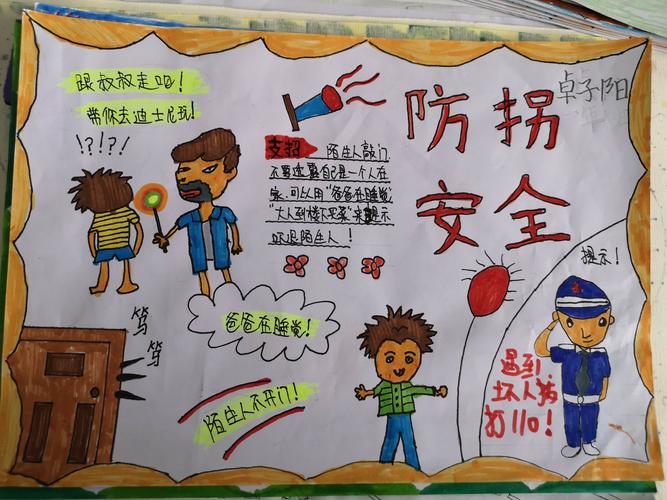 跟叔叔走吧!
带你去迪士尼玩!
!?!?!
防拐
安全
卓子阳
支招 陌生人敲门,
不要透露自己是一个人在
家,可以用"爸爸在睡觉"
"大人到楼下买菜"来
吓退陌生人!
笃
笃
爸爸在睡觉!
陌生人不开门!
提示!
遇到
坏人请
打110!